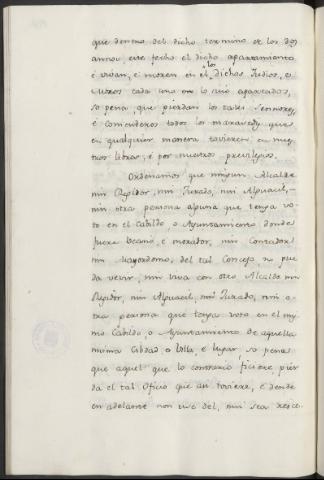 que dentro del dicho termino de los dos
annos este fecho el dicho apartamiento
é vivan, é moren en el los dichos Judios, é
Moros cada uno en lo suio apartados,
so pena, que pierdan los tales Sennores,
é Comenderos todos los maravedis que
en qualquier manera tovieren en nues-
tros libros, é por nuestros previlegios.
Ordenamos que ningun Alcalde
nin Regidor, nin Jurado, nin Alguacil,
nin otra persona alguna que tenga vo-
to en el Cabildo o Ayuntamiento donde
fuere vecino, é morador, nin Contador
nin Mayordomo, del tal Concejo non pue-
da vevir, nin viva con otro Alcalde nin
Regidor, nin Alguacil, nin Jurado, nin o-
tra persona que tenga voto en el mis-
mo Cabildo, o Ayuntamiento de aquella
misma Cibdad o Villa, é lugar, so pena
que aquel que lo contrario ficiere, pier-
da el tal Oficio que asi toviere, é dende
en adelante non use del, nin sea resce-